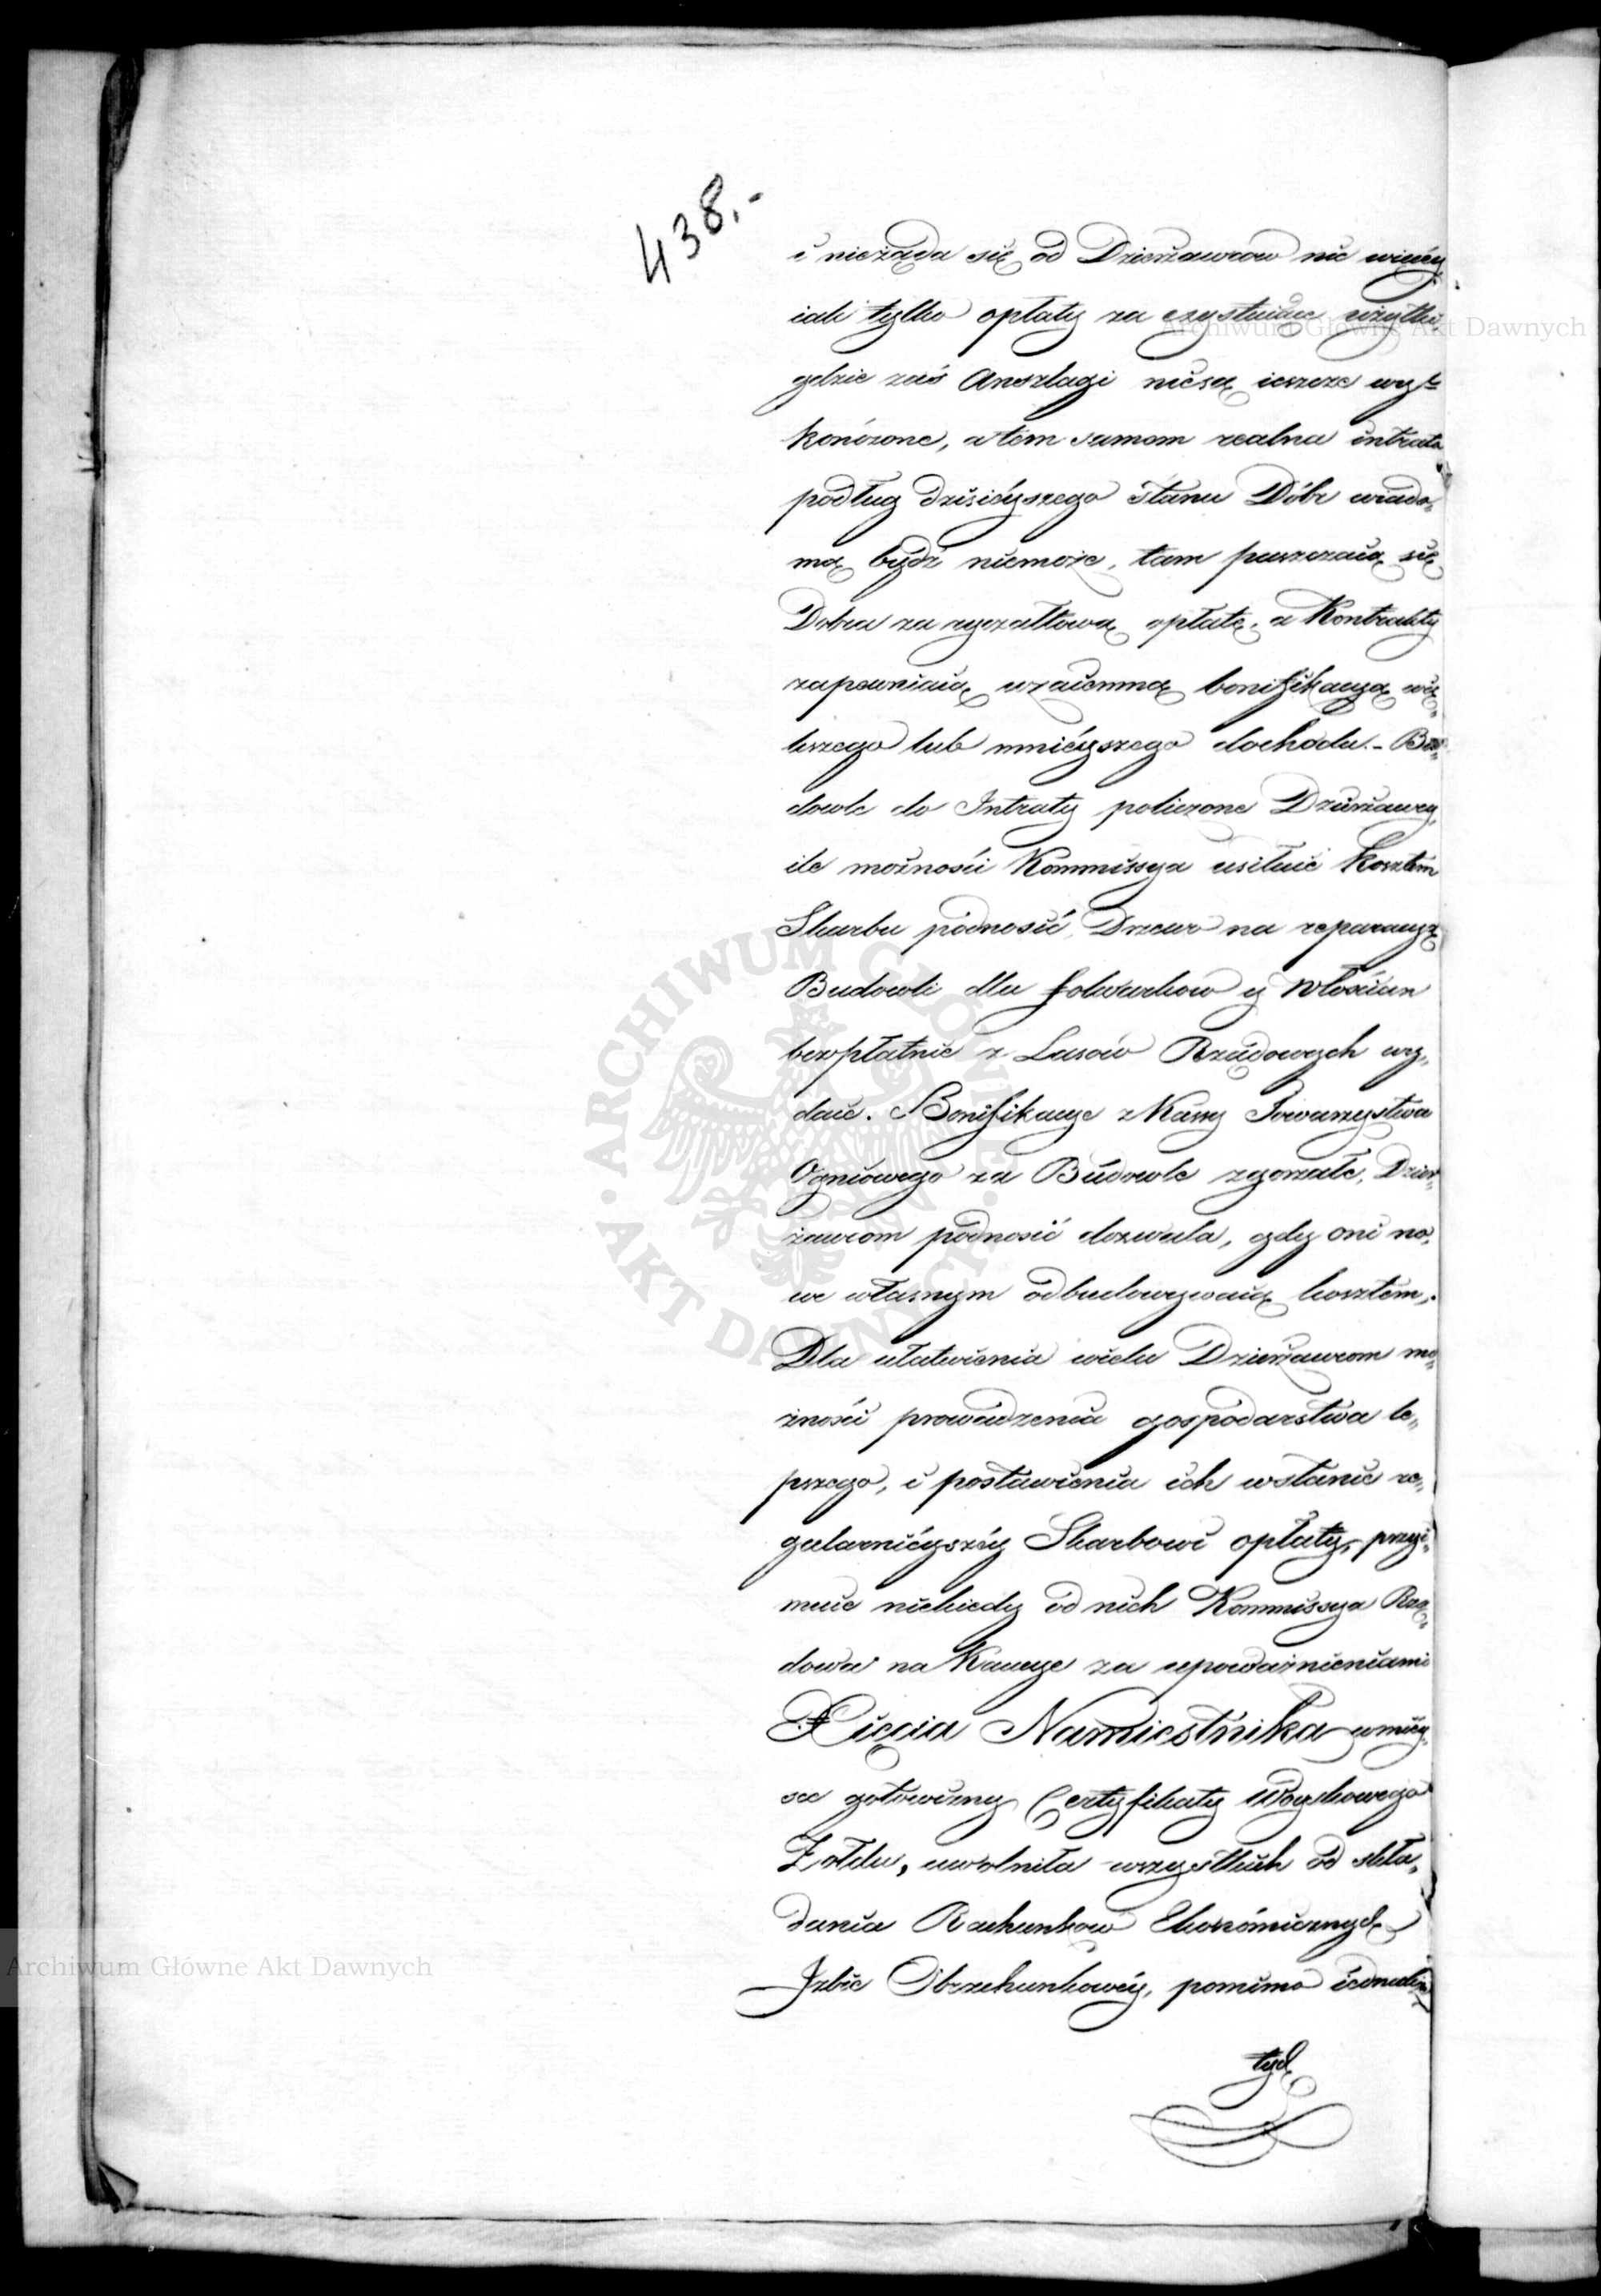 438.-
i nieżąda się od Dzierżawców nic więcéy
iak tylko opłaty za czystuiące użytki
gdzie zaś Anszlagi niesą ieszcze wy-
kończone, a tém samem realna intrata
podług dzisiéyszego stanu Dóbr wiado„
mą bydź niemoże, tam puszczaią się
Dobra za ryczałtową opłatę, a Kontrakty
zapewniaią wzaiemną bonifikacyą wię„
kszego lub mniéyszego dochodu.- Bu„
dowle do Intraty policzone Dzierżawcy,
ile możności Kommissya usiłuie kosztem
Skarbu podnosić, Drzewo na reparacyą
Budowli dla folwarków y Włościan
bezpłatnie z Lasów Rządowych wy„
daie. Bonifikacye z Kassy Towarzystwa
Ogniowego za Budowle zgorzałe, Dzier„
żawcom podnosić dozwala, gdy oni no„
we własnym odbudowywaią kosztem.
Dla ułatwienia wielu Dzierżawcom mo„
żności prowadzenia gospodarstwa le„
pszego, i postawienia ich w stanie re„
gularniéyszéy Skarbowi opłaty, przyi„
muie niekiedy od nich Kommissya Rzą„
dowa na Kaucye za upoważnieniami
Xięcia Namiestnika w miey„
sce gotowizny Certyfikaty Woyskowego
Żołdu, uwolniła wszystkich od skła„
dania Rachunków Ekonomicznych
Izbie Obrachunkowéy, pomimo iednak
tych
Archiwum Główne Akt Dawnych
ARCHIWUM GŁÓWNE · AKT DAWNYCH ·
Archiwum Główne Akt Dawnych